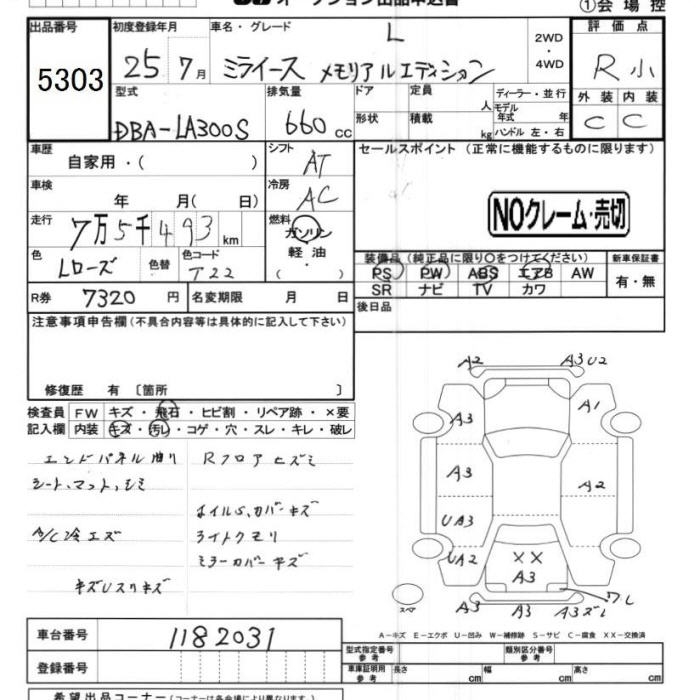 オークション出品申込書
①会場控
出品番号 5303
初度登録年月 25年 7月
車名・グレード L
ミライース メモリアルエディション
2WD
・
4WD
評価点 R小
外装 内装
C C
型式 DBA-LA300S
排気量 660cc
ドア 定員 人
形状 積載 kg
ディーラー・並行
モデル年式 年
ハンドル 左・右
車歴 自家用・( )
シフト AT
セールスポイント (正常に機能するものに限ります)
車検 年 月( 日)
冷房 AC
NOクレーム・売切
走行 7万5千493km
燃料 ガソリン
軽油・
( )
色 Lローズ 色替 色コード T22
装備品 (純正品に限り○をつけてください) 新車保証書
PS PW ABS エアB AW 有・無
SR ナビ TV カワ
R券 7320円 名変期限 月 日
後日品
注意事項申告欄(不具合内容等は具体的に記入して下さい)
修復歴 有 〔箇所 〕
検査員記入欄
FW キズ・飛石・ヒビ割・リペア跡・×要
内装 キズ・汚レ・コゲ・穴・スレ・キレ・破レ
エンドパネル曲り Rフロアヒズミ
シート、マット、シミ
ホイルS、カバーキズ
A/C冷エズ ライトクモリ
ミラーカバーキズ
キズUスリキズ
A2 A3U2
A3 A1
A3 A2
UA3
UA2 ××
A3
ワレ
スペア
A3 A3 A3ズレ
A-キズ E-エクボ U-凹み W-補修跡 S-サビ C-腐食 XX-交換済
車台番号 1182031
登録番号
型式指定番号 参考 類別区分番号 参考
車庫証明用 参考 長さ cm 幅 cm 高さ cm
希望出品コーナー(コーナーは各会場により異なります)